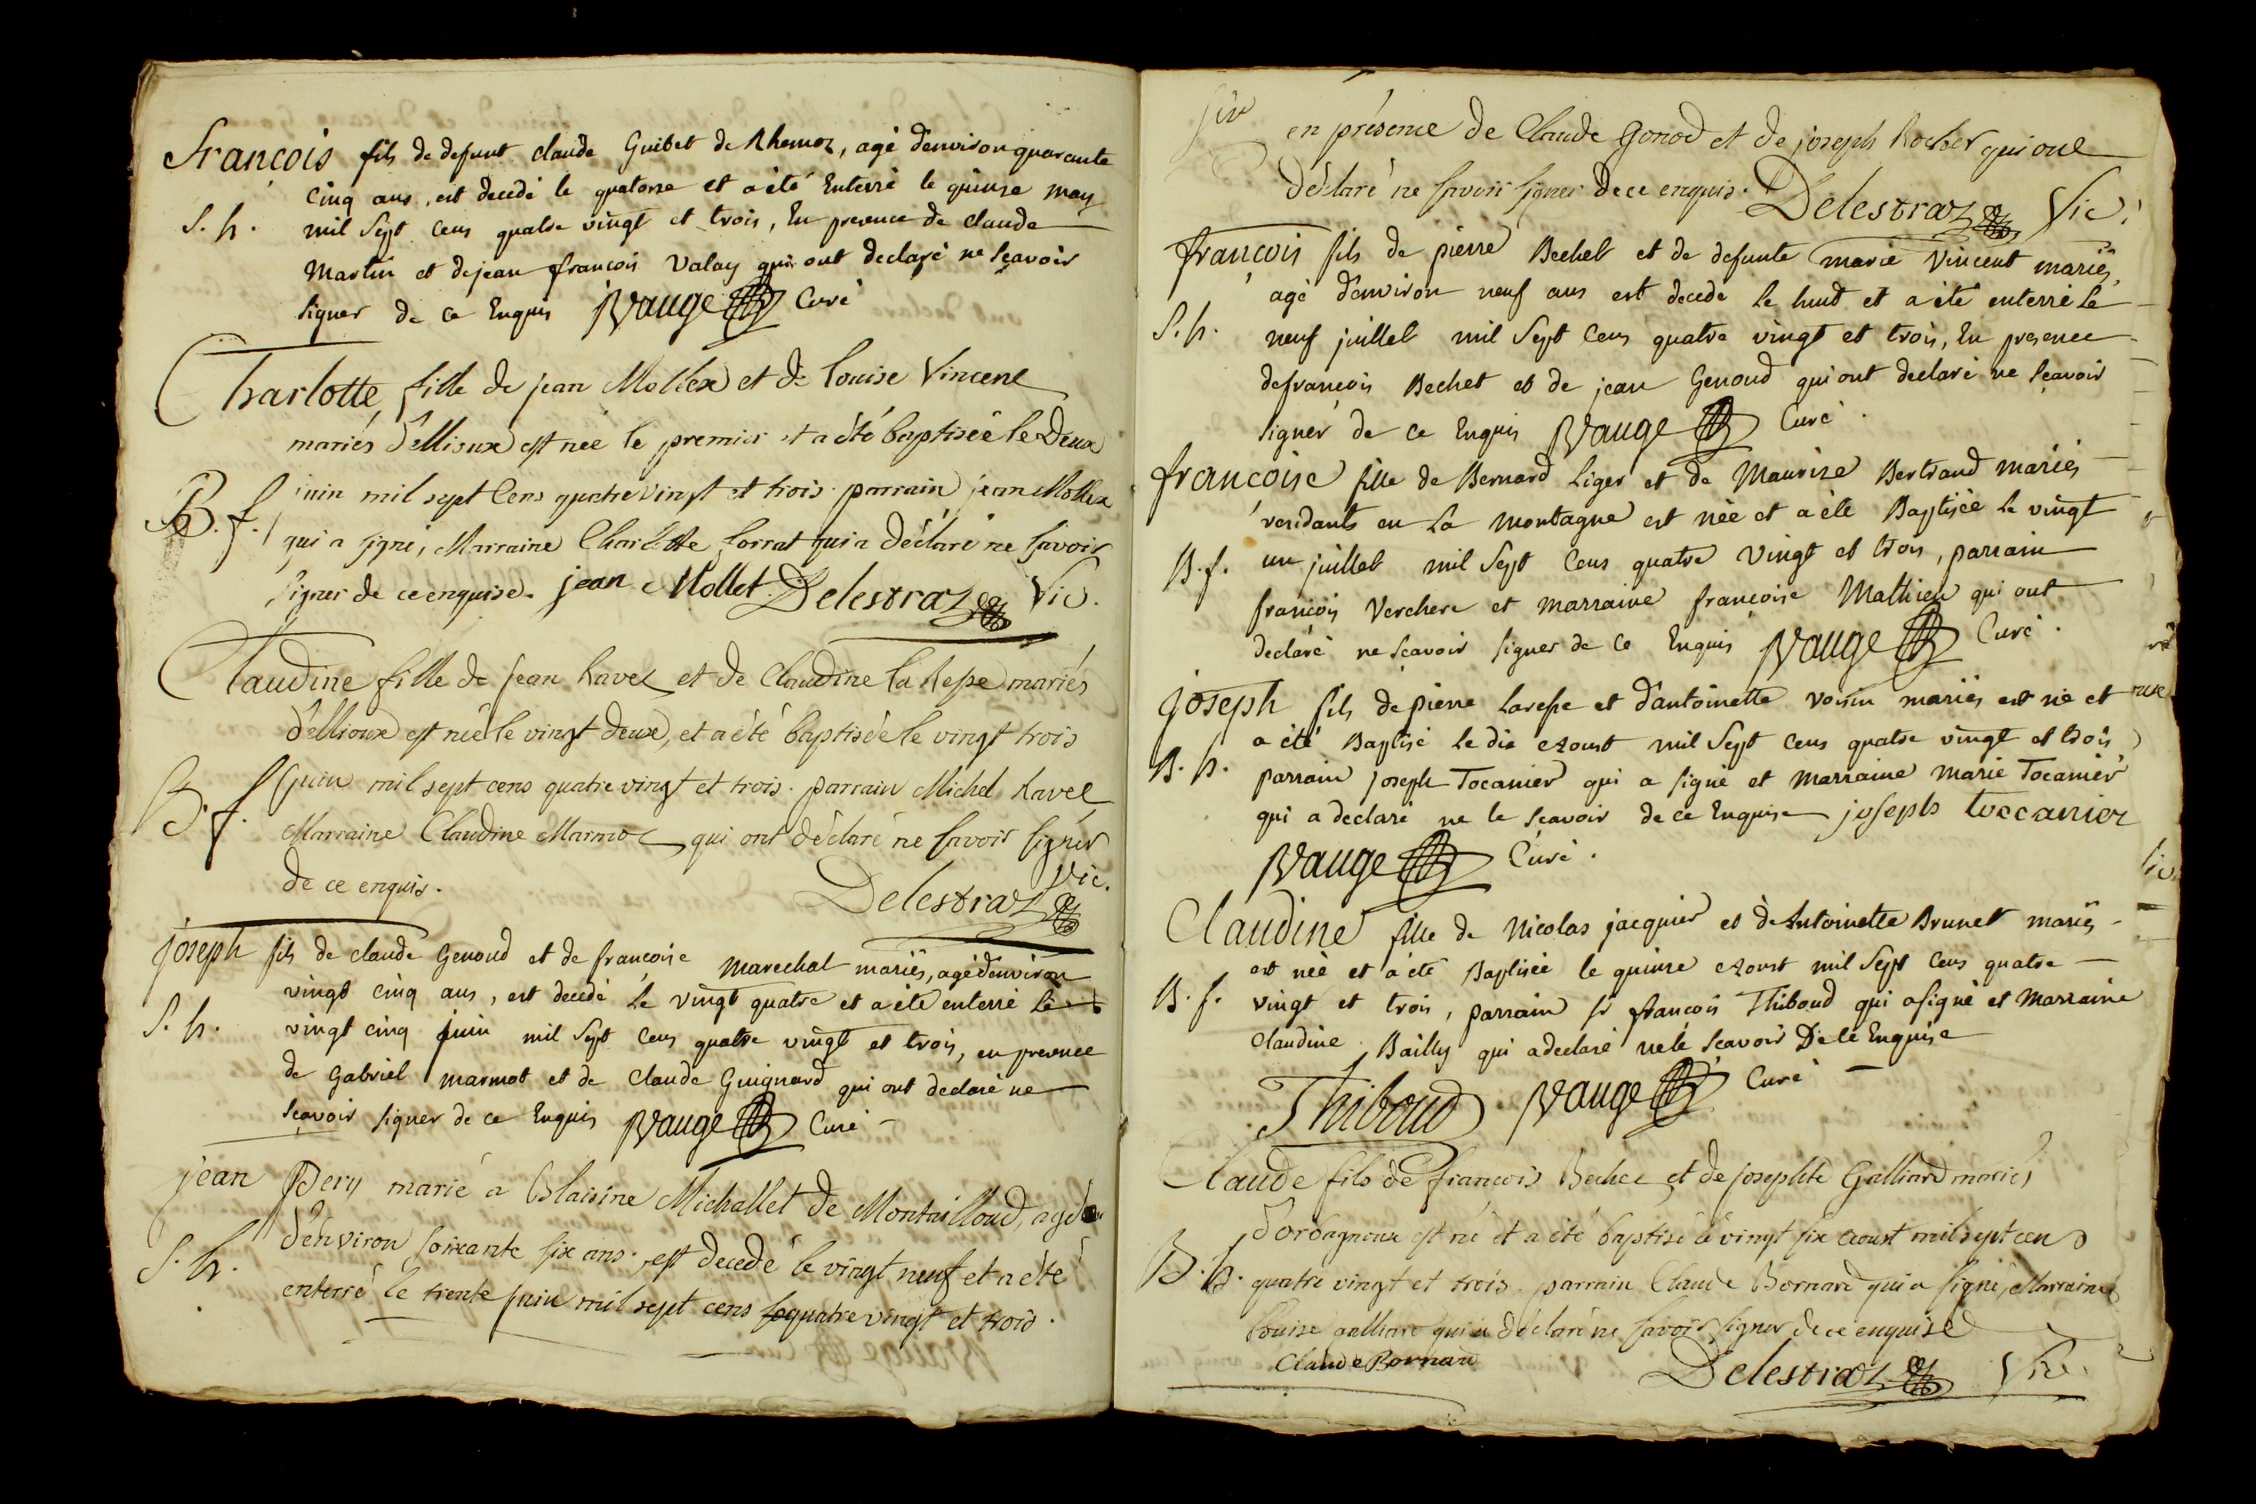 François fils de defunt claude Guibet de Rhemoz, agé d'environ quarante
cinq ans, est decedé le quatorze et a été Enterré le quinze may
S. h. mil Sept Cens quatre vingt et trois, En presence de claude
Martin et de jean françois Valay qui ont declaré ne Sçavoir
signer de ce Enquis BVauge Curé
Charlotte fille de jean Mollex et de Louise Vincent
mariés d'ellioux est née le premier et a été baptisée le Deux
B. f. juin mil sept Cens quatre vingt et trois. parrain jean Mollex
qui a signé, Marraine Charlotte Corrat qui a déclaré ne savoir
signer de ce enquise. jean Mollet Delestraz Vic.
Claudine fille de jean Ravet et de Claudine La Repe mariés
d'ellioux est née le vingt deux, et a été baptisée le vingt trois
B. f. juin mil sept cens quatre vingt et trois. parrain Michel Ravet
Marraine Claudine Marmot qui ont déclaré ne savoir signer
de ce enquis. Delestraz Vic.
joseph fils de claude Genoud et de francoise Marechal mariés, agé d'environ
vingt cinq ans, est decedé le vingt quatre et a été enterré le
S. h. vingt cinq juin mil Sept Cens quatre vingt et trois, en presence
de Gabriel Marmot et de Claude Guignard qui ont declaré ne
Sçavoir signer de ce Enquis BVauge Curé
jean Pery marié a Blaisine Michallet de Montailloud, agé
d'environ soixante six ans, est decedé le vingt neuf et a été
S. h. enterré le trente juin mil sept cens quatre vingt et trois.
en présence de Claude Gonod et de joseph Rochet qui ont
déclaré ne savoir signer de ce enquis. Delestraz Vic.
françois fils de pierre Bechet et de defunte marie Vincent mariés,
agé d'environ neuf ans est decedé le huit et a été enterré le
S. h. neuf juillet mil Sept Cens quatre vingt et trois, En presence
de françois Bechet et de jean Genoud qui ont declaré ne Sçavoir
signer de ce Enquis BVauge Curé.
francoise fille de Bernard Liger et de Maurize Bertrand mariés
residants en La Montagne est née et a été Baptisée le vingt
B. f. un juillet mil Sept Cens quatre vingt et trois, parrain
françois Verchere et marraine françoise Mathieu qui ont
declaré ne Sçavoir signer de Ce Enquis BVauge Curé.
joseph fils de pierre Larepe et d'antoinette Voisin mariés est né et
a été Baptisé le dix aoust mil Sept Cens quatre vingt et trois
B. h. parrain joseph Tocanier qui a signé et Marraine Marie Tocanier
qui a declaré ne le Sçavoir de ce Enquise joseph toccanier
BVauge Curé.
Claudine fille de Nicolas jacquier et de Antoinette Brunet mariés
est née et a été Baptisée le quinze aoust mil Sept Cens quatre
B. f. vingt et trois, parrain sr françois Thiboud qui a signé et Marraine
Claudine Bailly qui a declaré ne le Sçavoir De Ce Enquise
Thiboud BVauge Curé
Claude fils de françois Bechet et de josephte Galliard mariés
d'ordagneux est né et a été baptisé le vingt six aoust mil sept cens
B. h. quatre vingt et trois. parrain Claude Bornard qui a signé, Marraine
Louise Galliard qui a déclaré ne savoir signer de ce enquise
Claude Bornard Delestraz Vic.